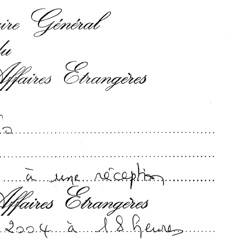 ire Général
du
Affaires Etrangères
à une réception
Affaires Etrangères
2004 à 18 heures